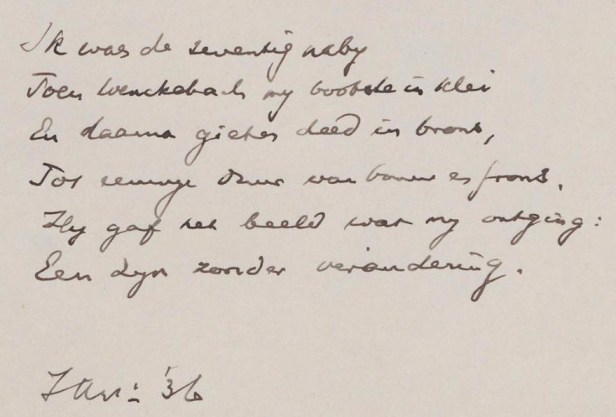 Ik was de seventig naby
Toen Wenckebach my bootste in klei
En daarna gieten deed in brons,
Tot eeuwge duur van bouw en frons.
Hy gaf het beeld wat my ontging:
Een Zyn zonder verandering.
'36